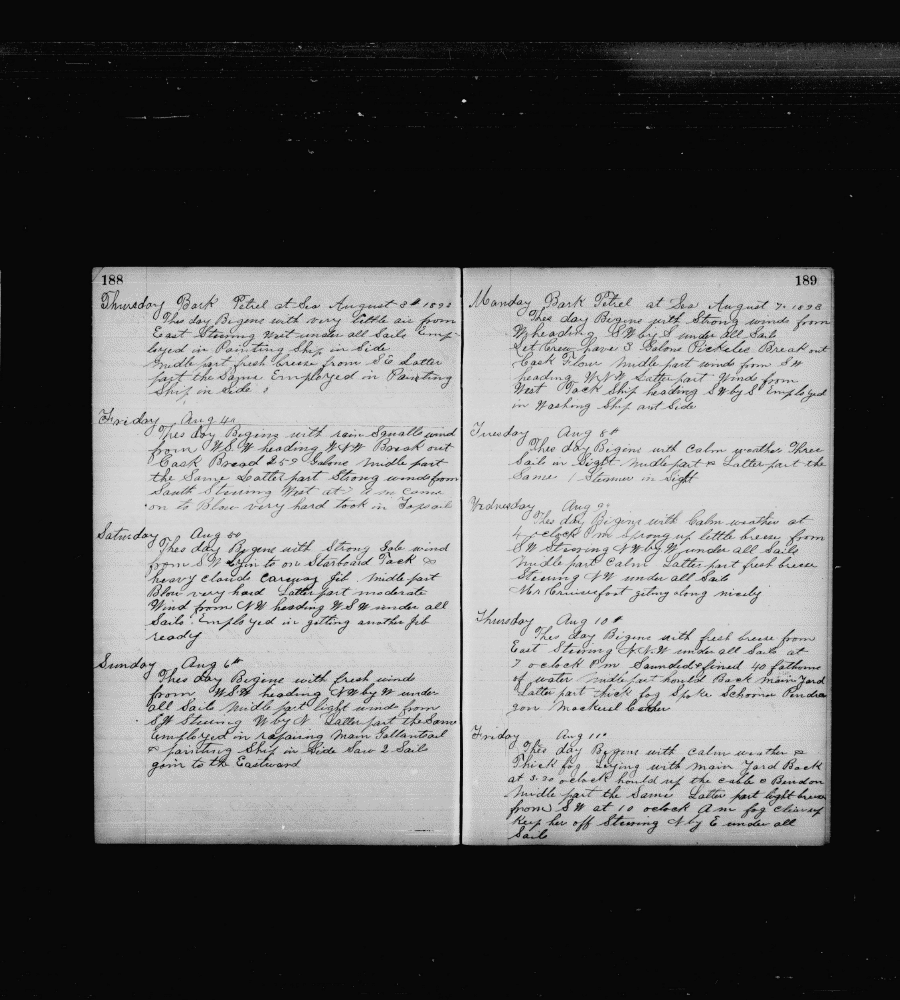 188
Thursday Bark Petrel at Sea August 3d 1893
This day Begins with very little air from
East Steering West under all Sails Emp-
loyed in Painting Ship in Side
Middle part fresh breese from S E Latter
part the Same Employed in Painting
Ship in Side
Friday Aug 4th
This day Begins with rain Squalls wind
from W S W heading N W Break out
Cask Bread 259 Galons Middle part
the Same Latter part Strong winds from
South Steering West at 7 a m Came
on to Blow very hard took in Topsails
Saturday Aug 5th
This day Begins with Strong Gale wind
from S W Lyin to on Starboard Tack &
heavy clouds Jib Middle part
Blow very hard Latter part moderate
Wind from N W heading W S W under all
Sails. Employed in getting another Jib
ready
Sunday Aug 6th
This day Begins with fresh winds
from W S W heading N W by W under
all Sails Middle part light winds from
S W Steering W by N Latter part the Same
Employed in repairing Main Gallantsail
& painting Ship in Side Saw 2 Sail
goin to the Eastward
189
Monday Bark Petrel at Sea August 7th 1893
This day Begins with Strong winds from
W heading S W by S under all Sails
Let Crew have 3 Galons Pickeles Break out
Cask Flour Middle part winds from S W
heading W N W Latter part Wind from
West Tack Ship heading S W by S Employed
in Washing Ship out Side
Tuesday Aug 8th
This day Begins with Calm weather Three
Sails in Sight. Middle part & Latter part the
Same 1 Steamer in Sight
Wednesday Aug 9th
This day Begins with Calm weather at
4 oclock P m Sprong up little breese from
S W Steering N W by W under all Sails
Middle part Calm Latter part fresh breese
Steering N W under all Sails
Mr Cruiesfoot giting along nicely
Thursday Aug 10th
This day Begins with fresh breese from
East Steering N N W under all Sails at
7 oclock P m Sounded & fined 40 fathoms
of water Middle part hould Back Main Yard
Latter part thick fog Spoke Schooner Pendra
gon Mackerel
Friday Aug 11th
This day Begins with Calm weather &
Thick fog Lying with Main Yard Back
at 3.30 oclock hould up the cable & Bend on
Middle part the Same Latter part light breese
from S W at 10 oclock A m fog clear up
Keep her off Steering N by E under all
Sails